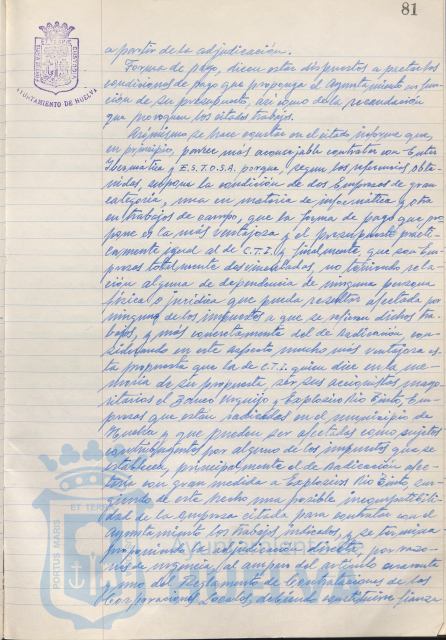 81
AYUNTAMIENTO DE HUELVA
a partir de la adjudicación.
Forma de pago, dicen estar dispuestos a pactar las
condiciones de pago que proponga el Ayuntamiento en fun-
ción de su presupuesto, así como de la recaudación
que provoquen los citados trabajos.
Asimismo se hace constar en el citado informe que,
en principio, parece más aconsejable contratar con Entel
Ibermática y E.S.T.O.S.A. porque, según las referencias obte-
nidas, en la condición de dos Empresas de gran
categoría, una en materia de informática y otra
en trabajos de campo, que la forma de pago que pro-
pone es la más ventajosa y el presupuesto prácti-
camente igual al de C.T.I. y finalmente, que son Em-
presas totalmente desvinculadas, no teniendo rela-
ción alguna de dependencia de ninguna persona
física o jurídica que pueda resultar afectada por
ninguno de los impuestos a que se refieren dichos tra-
bajos, y más concretamente del de Radicación con-
siderando en este aspecto mucho más ventajosa es-
ta propuesta que la de C.T.I. quien dice en la me-
moria de su propuesta, ser sus accionistas mayo-
ritarios el Banco Urquijo y Explosivos Río Tinto, Em-
presas que están radicadas en el municipio de
Huelva y que pueden ser afectadas como sujetos
contribuyentes por alguno de los impuestos que se
establecen, principalmente el de Radicación afec-
taría con gran medida a Explosivos Río Tinto, sur-
giendo de este hecho una posible incompatibili-
dad de la empresa citada para contratar con el
Ayuntamiento los trabajos indicados, y se termina
proponiendo la adjudicación directa, por razo-
nes de urgencia, al amparo del artículo cuarenta
y uno del Reglamento de Contrataciones de las
Corporaciones Locales, debiendo constituirse fianza
PORTUS MARIS ET TERRE